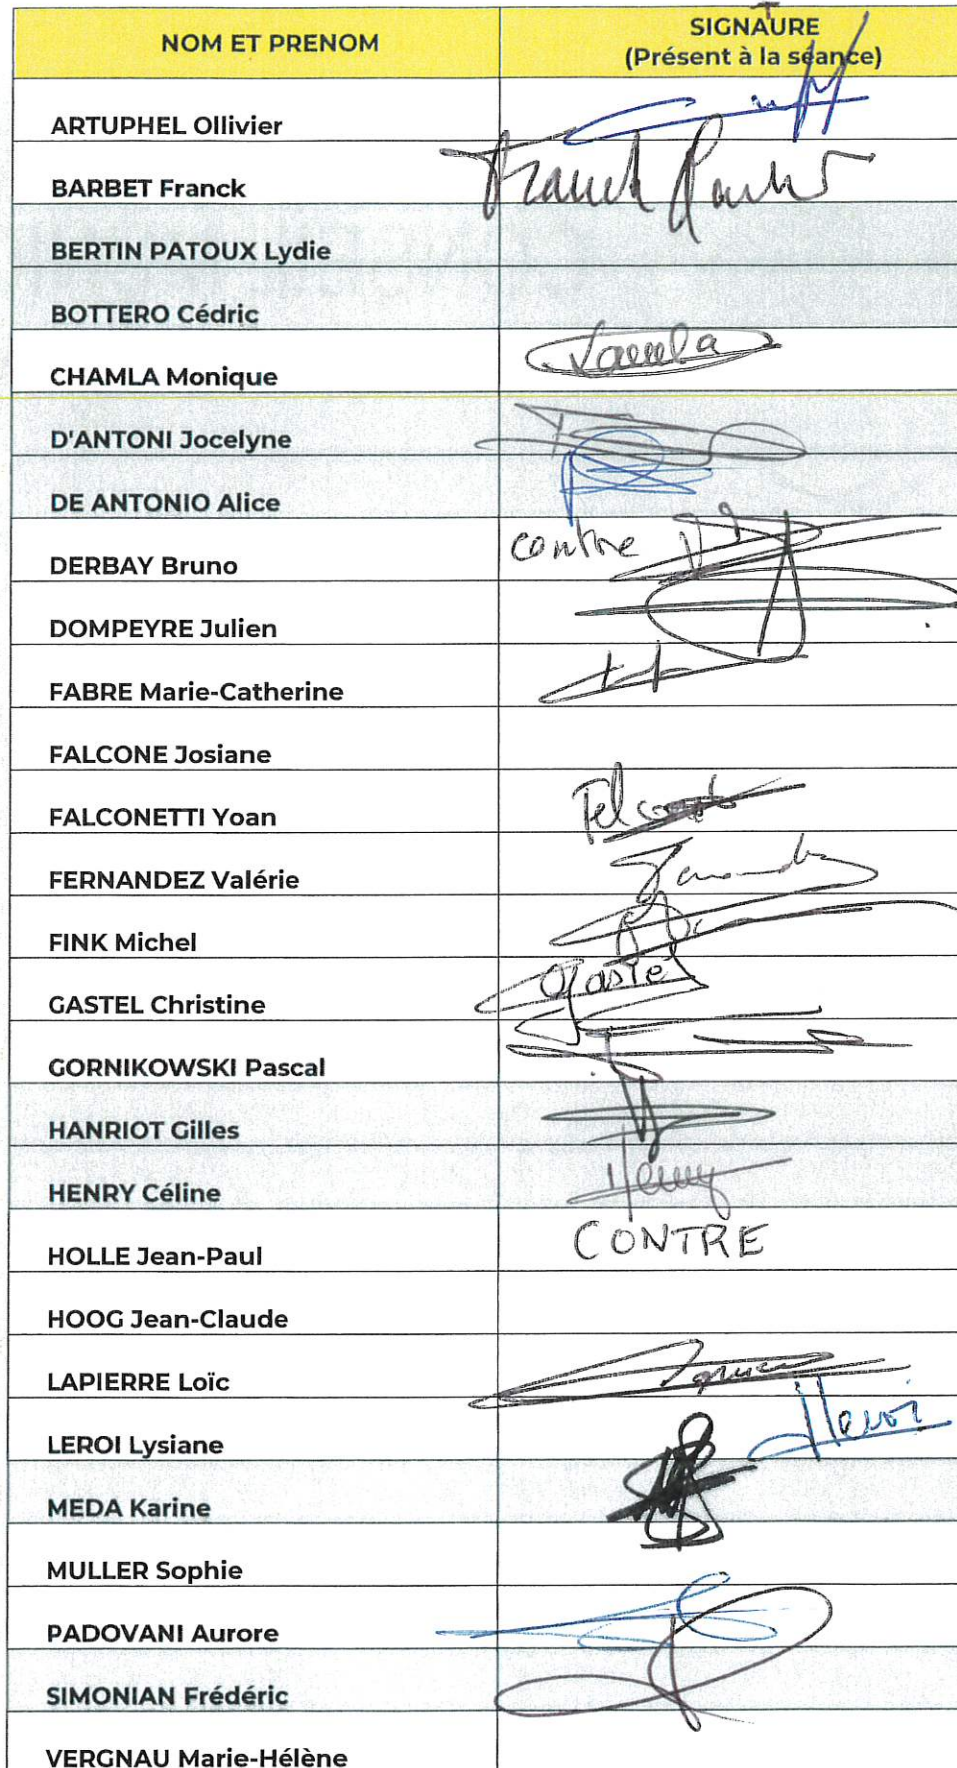 NOM ET PRENOM
SIGNAURE
T
(Présent à la séance)
ARTUPHEL Ollivier
BARBET Franck
Franck
BERTIN PATOUX Lydie
BOTTERO Cédric
CHAMLA Monique
D'ANTONI Jocelyne
DE ANTONIO Alice
DERBAY Bruno
contre
DOMPEYRE Julien
FABRE Marie-Catherine
FALCONE Josiane
FALCONETTI Yoan
FERNANDEZ Valérie
FINK Michel
GASTEL Christine
GORNIKOWSKI Pascal
HANRIOT Gilles
HENRY Céline
Henry
HOLLE Jean-Paul
CONTRE
HOOG Jean-Claude
LAPIERRE Loïc
LEROI Lysiane
Leroi
MEDA Karine
MULLER Sophie
PADOVANI Aurore
SIMONIAN Frédéric
VERGNAU Marie-Hélène